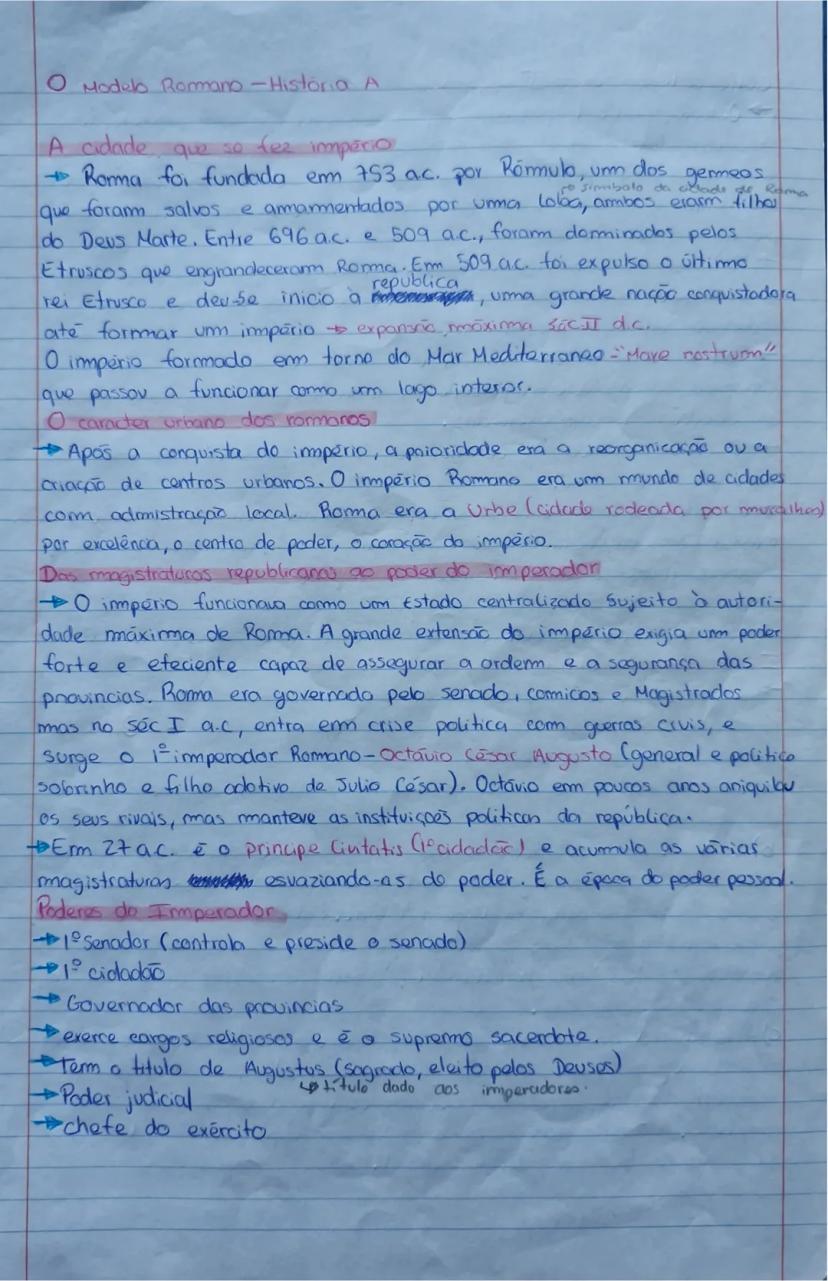 O Modelo Romano - História A
A cidade que se fez império
→ Roma foi fundada em 753 a.c. por Rómulo, um dos gemeos
↱ simbolo da cidade de Roma
que foram salvos e amamentados por uma Loba, ambos eram filhos
do Deus Marte. Entre 696 a.c. e 509 a.c., foram dominados pelos
Etruscos que engrandeceram Roma. Em 509 a.c. foi expulso o último
republica
rei Etrusco e deu-se inicio à , uma grande nação conquistadora
até formar um império → expansão máxima séc II d.c.
O império formado em torno do Mar Mediterraneo - "Mare nostrum"
que passou a funcionar como um lago interor.
O caracter urbano dos romanos
→ Após a conquista do império, a prioridade era a reorganicação ou a
criação de centros urbanos. O império Romano era um mundo de cidades
com admistração local. Roma era a Urbe (cidade rodeada por muralhas)
por excelência, o centro de poder, o coração do império.
Das magistraturas republicanas ao poder do imperador
→ O império funcionava como um Estado centralizado sujeito à autori-
dade máxima de Roma. A grande extensão do império exigia um poder
forte e efeciente capaz de assegurar a ordem e a segurança das
provincias. Roma era governada pelo senado, comicos e Magistrados
mas no séc I a.c, entra em crise politica com guerras civis, e
surge o 1º imperador Romano - Octávio César Augusto (general e politico
sobrinho e filho adotivo de Julio César). Octávio em poucos anos aniquilou
os seus rivais, mas manteve as instituições politicas da república.
→ Em 27 a.c. é o principe Civitatis (1º cidadão) e acumula as várias
magistraturas esvaziando-as do poder. É a época do poder pessoal.
Poderes do Imperador
→ 1º Senador (controla e preside o senado)
→ 1º cidadão
→ Governador das provincias
→ exerce cargos religiosos e é o supremo sacerdote.
→ Tem o titulo de Augustus (sagrado, eleito pelos Deuses)
↳ título dado aos imperadores.
→ Poder judicial
→ chefe do exército